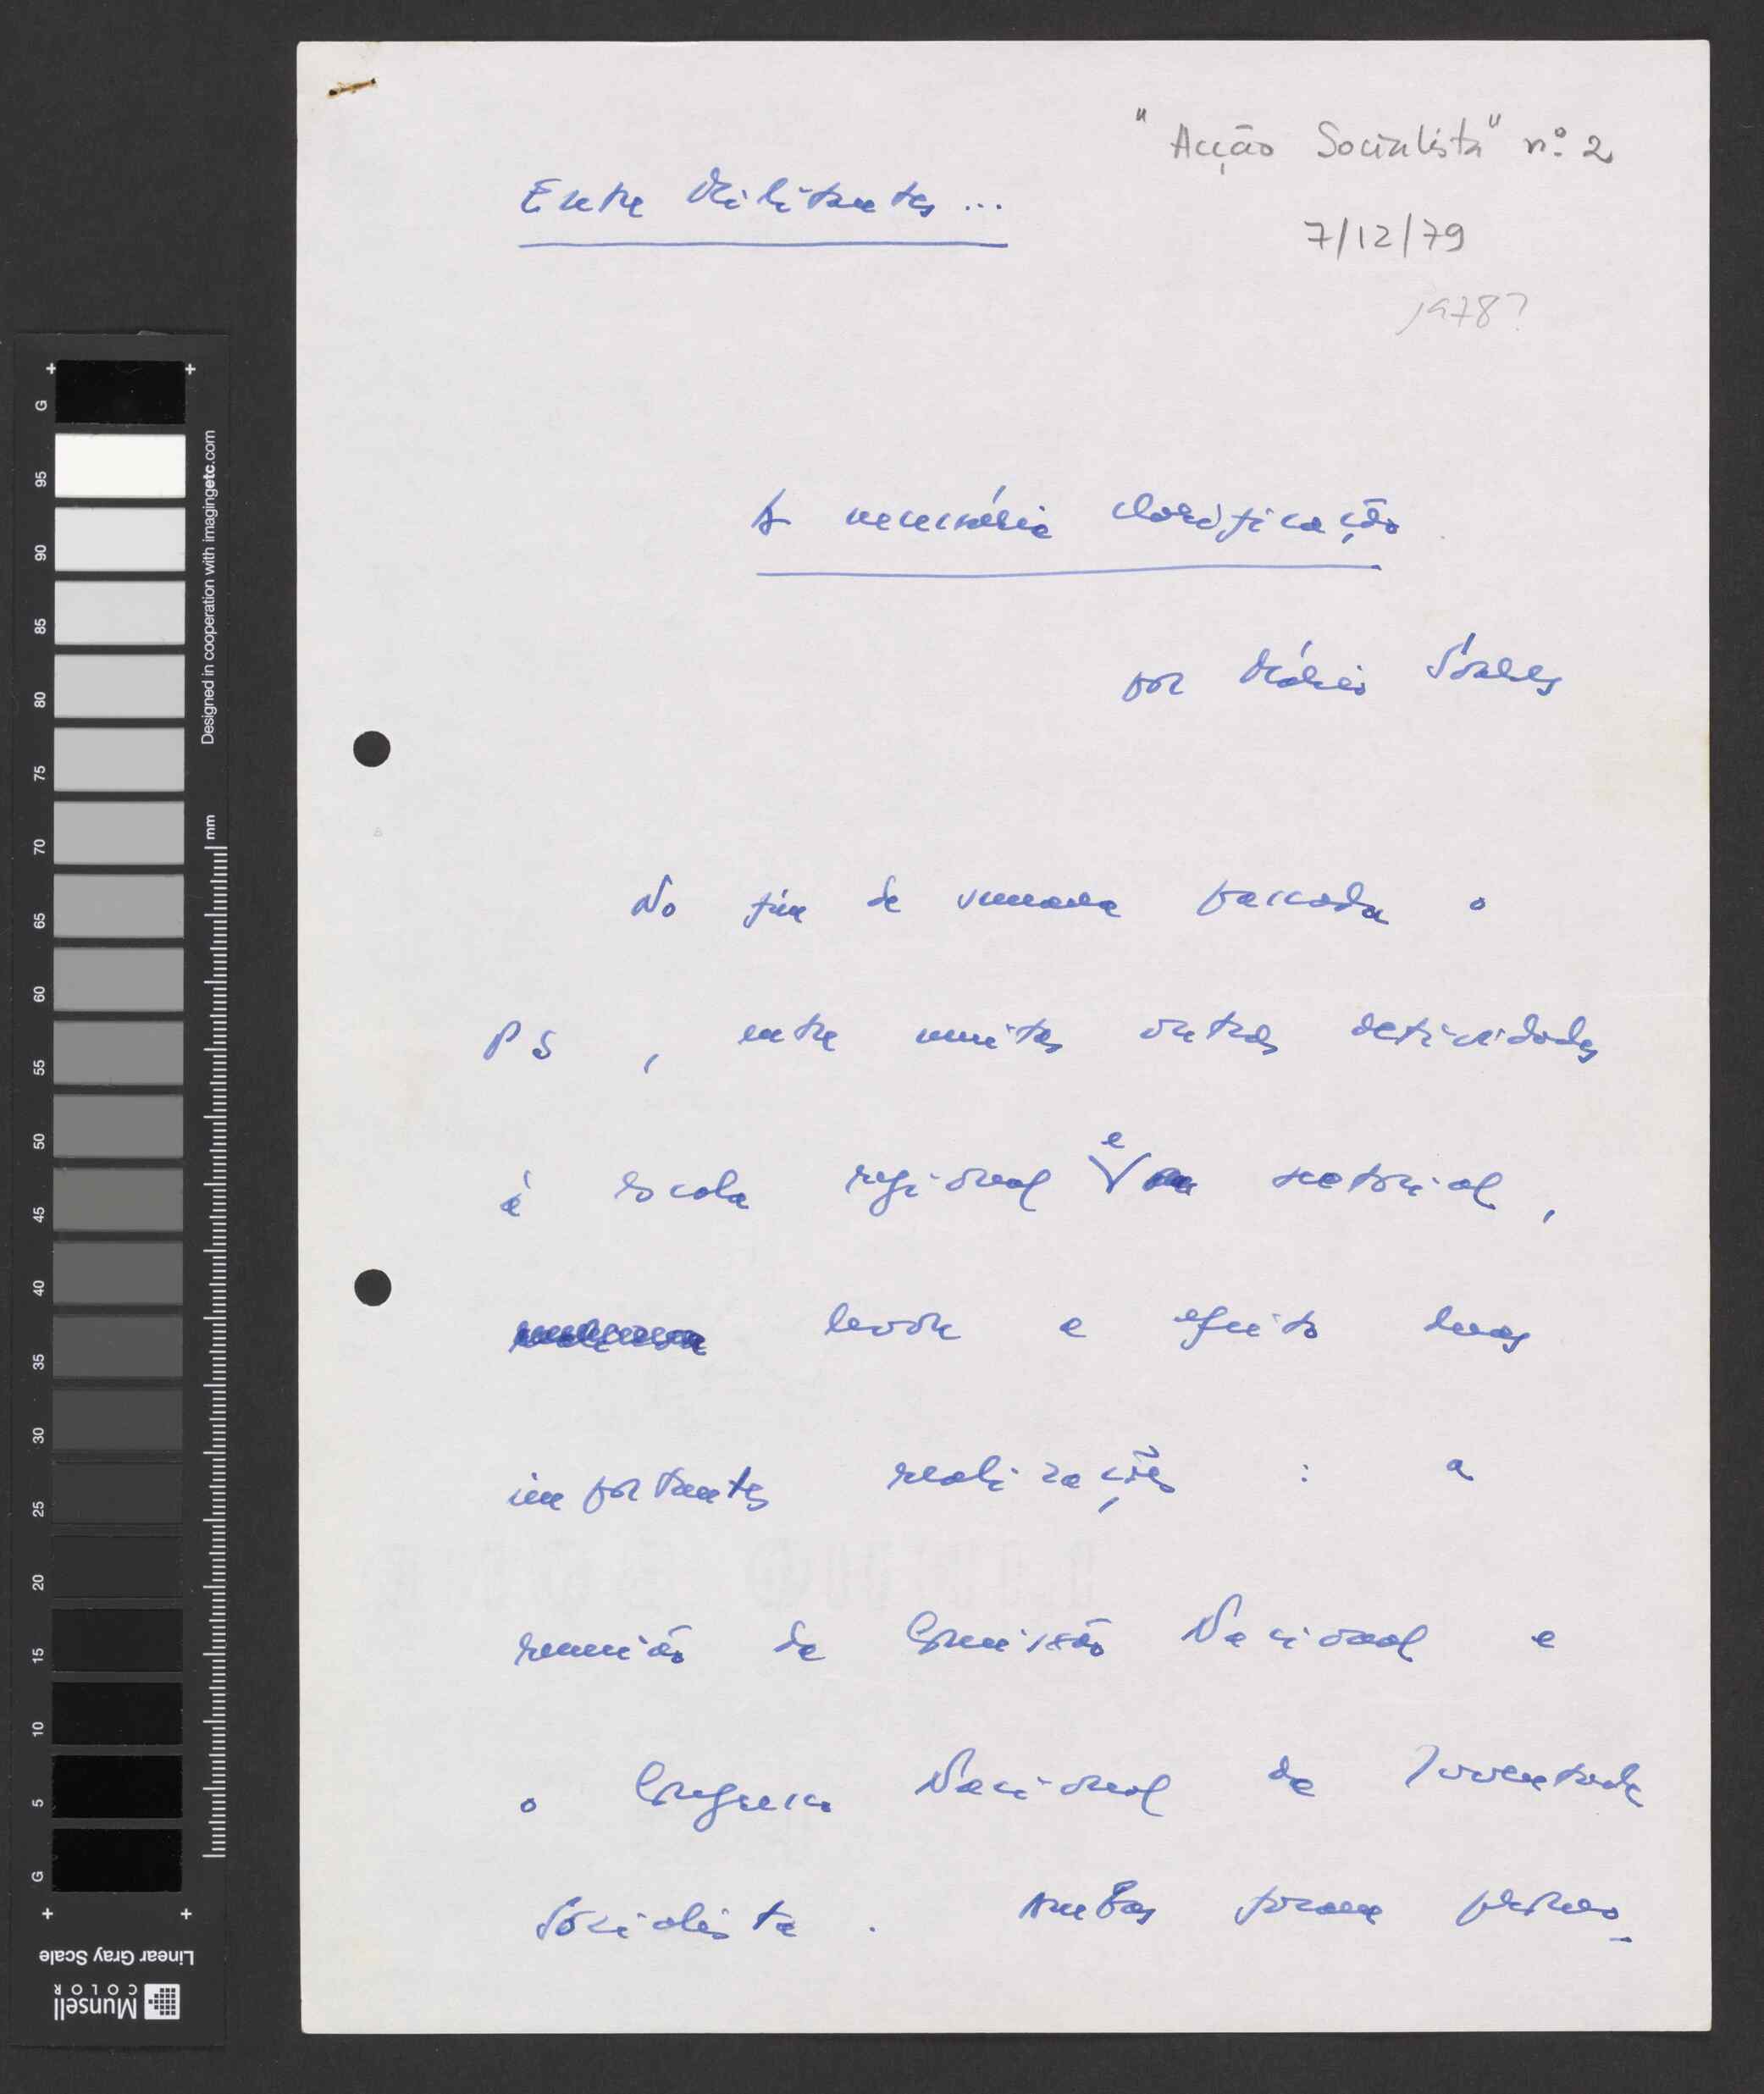 "Acção Socialista" nº 2
Entre Militantes ...
7/12/79
1978?
A necessária clarificação
por Mário Soares
No fim de semana passada o
PS , entre muitas outras actividades
à escala regional e sectorial ,
levou a efeito duas
importantes realizações : a
reunião da Comissão Nacional e
o Congresso Nacional da Juventude
Socialista . Ambas foram
G
95
90
85
80
75
70
65
60
55
50
45
40
35
30
25
20
15
10
5
G
Designed in cooperation with imagingetc.com
mm
Linear Gray Scale
Munsell
COLOR